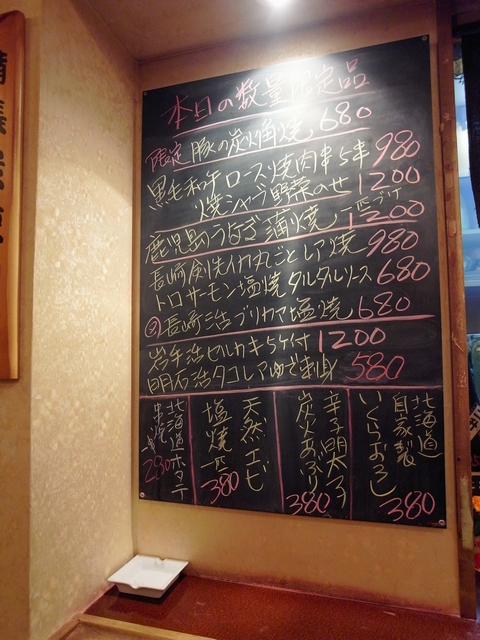 本日の数量限定品
限定 豚の炭火角焼 680
黒毛和牛ロース焼肉串5串 980
焼シャブ野菜のせ 1200
鹿児島うなぎ蒲焼 一匹づけ 1200
長崎剣先イカ丸ごとレア焼 980
トロサーモン塩焼タルタルソース 680
長崎活ブリカマ塩焼 680
岩手活セルカキ5ケ付 1200
明石活タコレアゆで刺し 580
北海道
自家製
いくらおろし
380
辛子明太子
炭火あぶり
380
天然エビ
塩焼一匹
380
北海道ホタテ
串焼
280